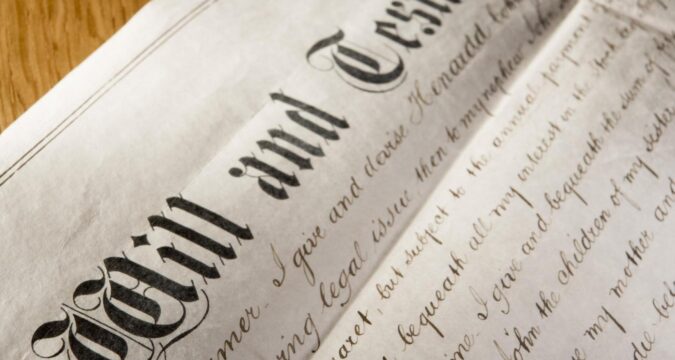 Will and Test
mer. I give and devise
ring legal issue then to my nephew
aret, but subject to the annual payment
bequeath all my interest in the stock
ine. I give and bequeath the sum of
John the children of my sister
my mother and